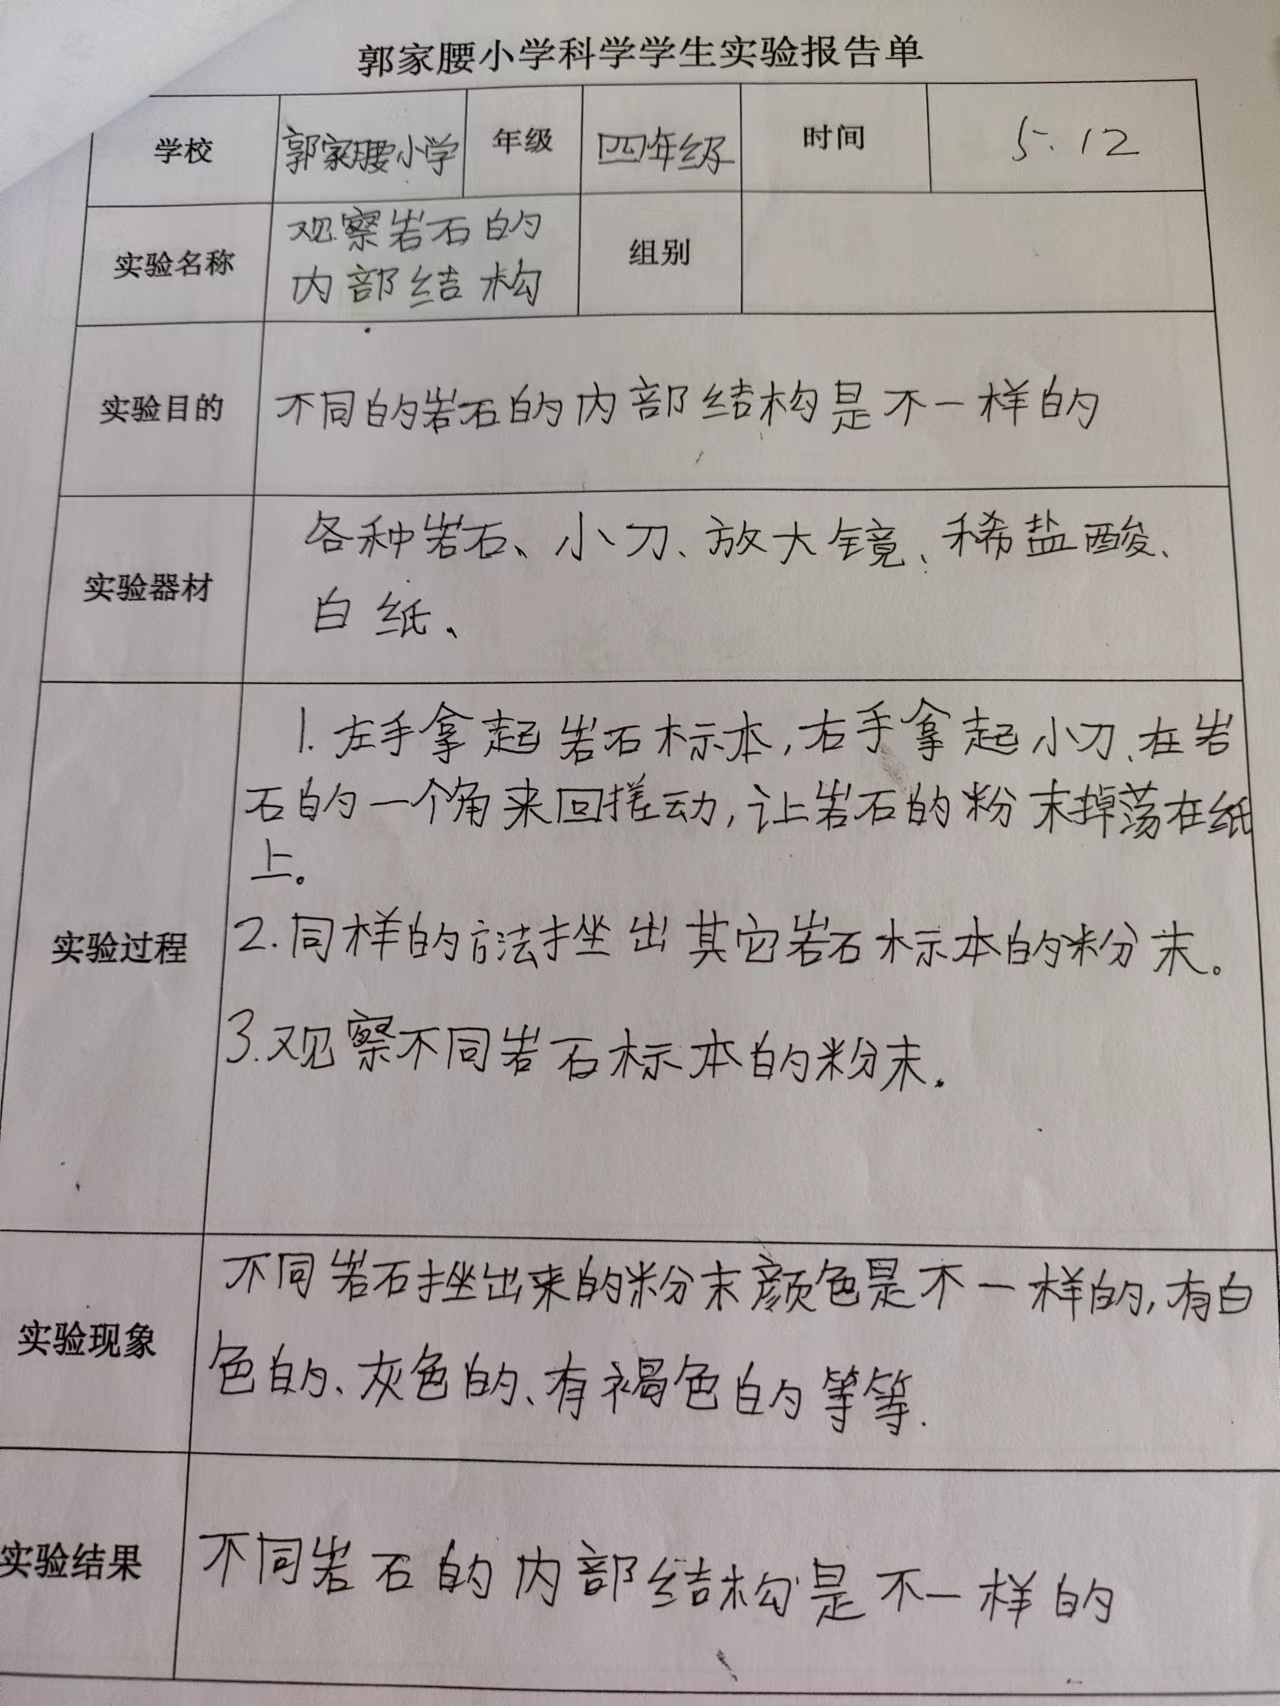 郭家腰小学科学学生实验报告单
学校 郭家腰小学 年级 四年级 时间 5.12
实验名称 观察岩石的
内部结构 组别
实验目的 不同的岩石的内部结构是不一样的
实验器材 各种岩石、小刀、放大镜、稀盐酸、
白纸、
实验过程 1.左手拿起岩石标本,右手拿起小刀、在岩
石的一个角来回搓动,让岩石的粉末掉荡在纸
上。
2.同样的方法挫出其它岩石标本的粉末。
3.观察不同岩石标本的粉末.
实验现象 不同岩石挫出来的粉末颜色是不一样的,有白
色的、灰色的、有褐色的等等.
实验结果 不同岩石的内部结构是不一样的